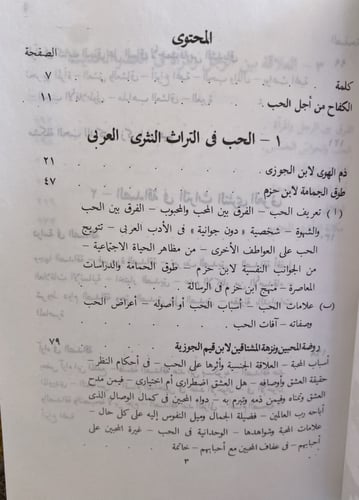 المحتوى
الصفحة
كلمة ٧
الكفاح من أجل الحب ١١
١ - الحب فى التراث النثرى العربى
ذم الهوى لابن الجوزى ٢١
طوق الحمامة لابن حزم ٤٧
( ا ) تعريف الحب - الفرق بين المحب والمحبوب - الفرق بين الحب
والشهوة - شخصية « دون جوانية » فى الأدب العربى - تتويج
الحب على العواطف الأخرى - من مظاهر الحياة الاجتماعية -
من الجوانب النفسية لابن حزم - طوق الحمامة والدراسات
المعاصرة - منهج ابن حزم فى الرسالة .
(ب) علامات الحب - أسباب الحب أو أصوله - أعراض الحب
وصفاته - آفات الحب .
روضة المحبين ونزهة المشتاقين لابن قيم الجوزية ٧٩
أسباب المحبة - العلاقة الجنسية وأثرها على الحب - فى أحكام النظر
حقيقة العشق وأوصافه - هل العشق اضطرارى أم اختيارى - فيمن مدح
العشق وتمناه وفيمن ذمه وتبرم به - دواء المحبين فى كمال الوصال الذى
أباحه رب العالمين - فضيلة الجمال وميل النفوس إليه على كل حال -
علامات المحبة وشواهدها - الوحدانية فى الحب - غيرة المحبين على
أحبابهم - فى عفاف المحبين مع أحبابهم - خاتمة
٣